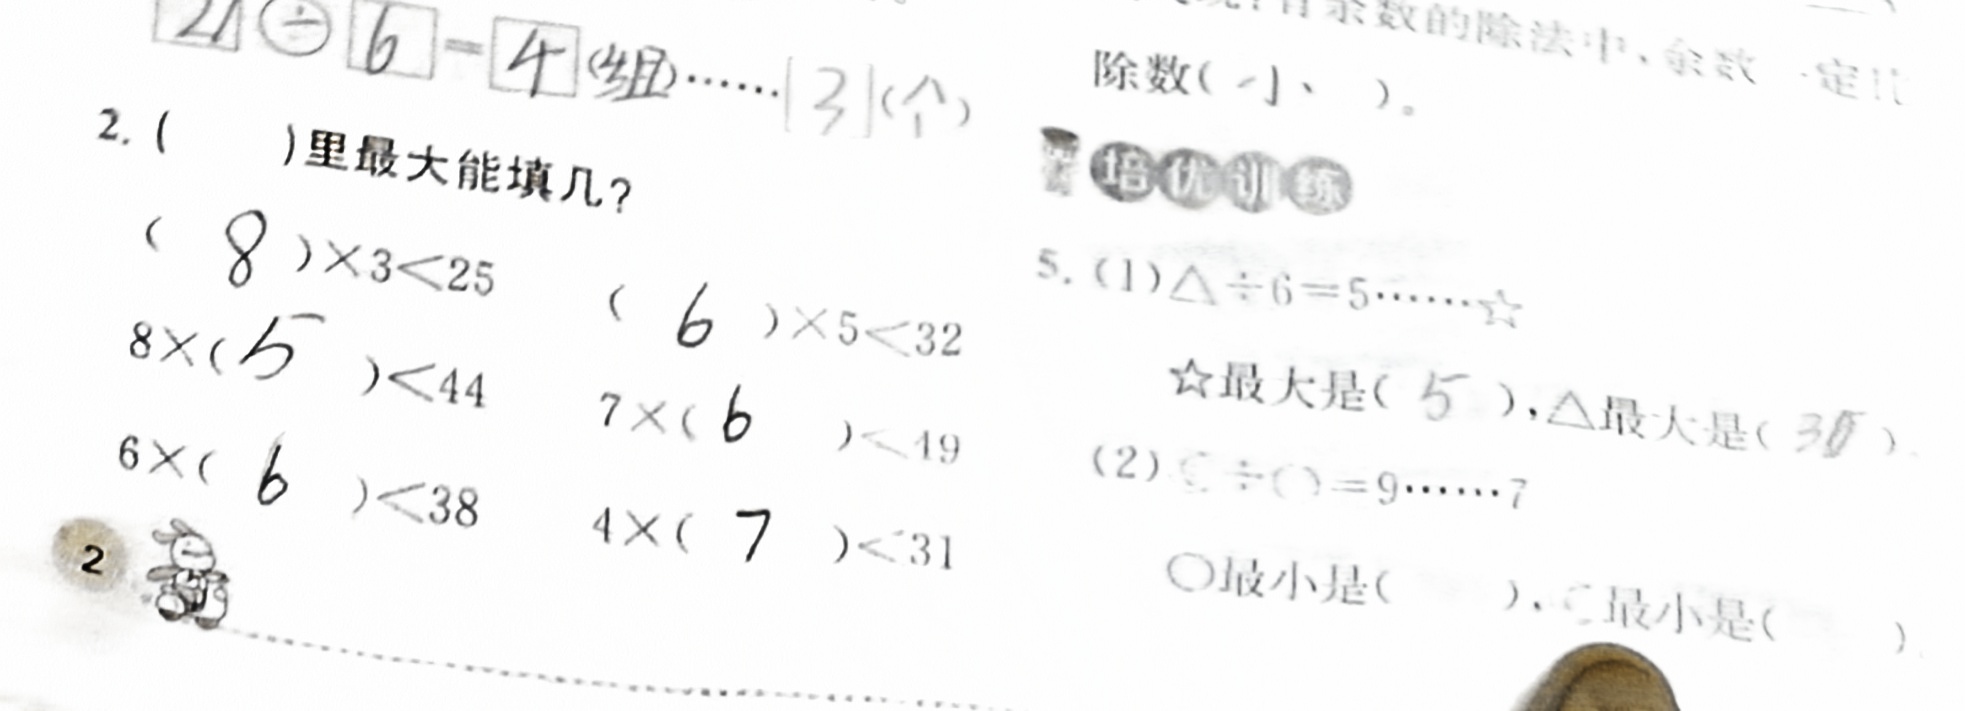 ÷ 6 = 4 (组)……3(个)
2. (    )里最大能填几?
( 8 )×3<25
( 6 )×5<32
8×( 5 )<44
7×( 6 )<49
6×( 6 )<38
4×( 7 )<31
2
余数的除法中,余数一定比
除数( 小 )。
培优训练
5. (1)△÷6=5……☆
☆最大是( 5 ),△最大是(    )
(2)    ÷○=9……7
○最小是(    ),    最小是(    )